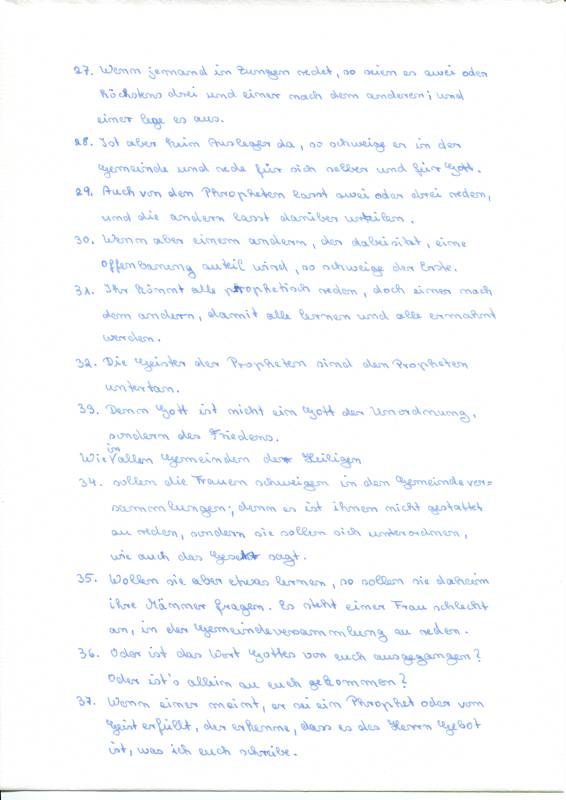 27. Wenn jemand in Zungen redet, so seien es zwei oder
höchstens drei und einer nach dem anderen; und
einer lege es aus.
28. Ist aber kein Ausleger da, so schweige er in der
Gemeinde und rede für sich selber und für Gott.
29. Auch von den Phropheten lasst zwei oder drei reden,
und die andern lasst darüber urteilen.
30. Wenn aber einem andern, der dabeisitzt, eine
Offenbarung zuteil wird, so schweige der Erste.
31. Ihr könnt alle prophetisch reden, doch einer nach
dem andern, damit alle lernen und alle ermahnt
werden.
32. Die Geister der Propheten sind den Propheten
untertan.
33. Denn Gott ist nicht ein Gott der Unordnung,
sondern des Friedens.
Wie in allen Gemeinden der Heiligen
34. sollen die Frauen schweigen in den Gemeindever=
sammlungen; denn es ist ihnen nicht gestattet
zu reden, sondern sie sollen sich unterordnen,
wie auch das Gesetz sagt.
35. Wollen sie aber etwas lernen, so sollen sie daheim
ihre Männer fragen. Es steht einer Frau schlecht
an, in der Gemeindeversammlung zu reden.
36. Oder ist das Wort Gottes von euch ausgegangen?
Oder ist's allein zu euch gekommen?
37. Wenn einer meint, er sei ein Phrophet oder vom
Geist erfüllt, der erkenne, dass es des Herrn Gebot
ist, was ich euch schreibe.